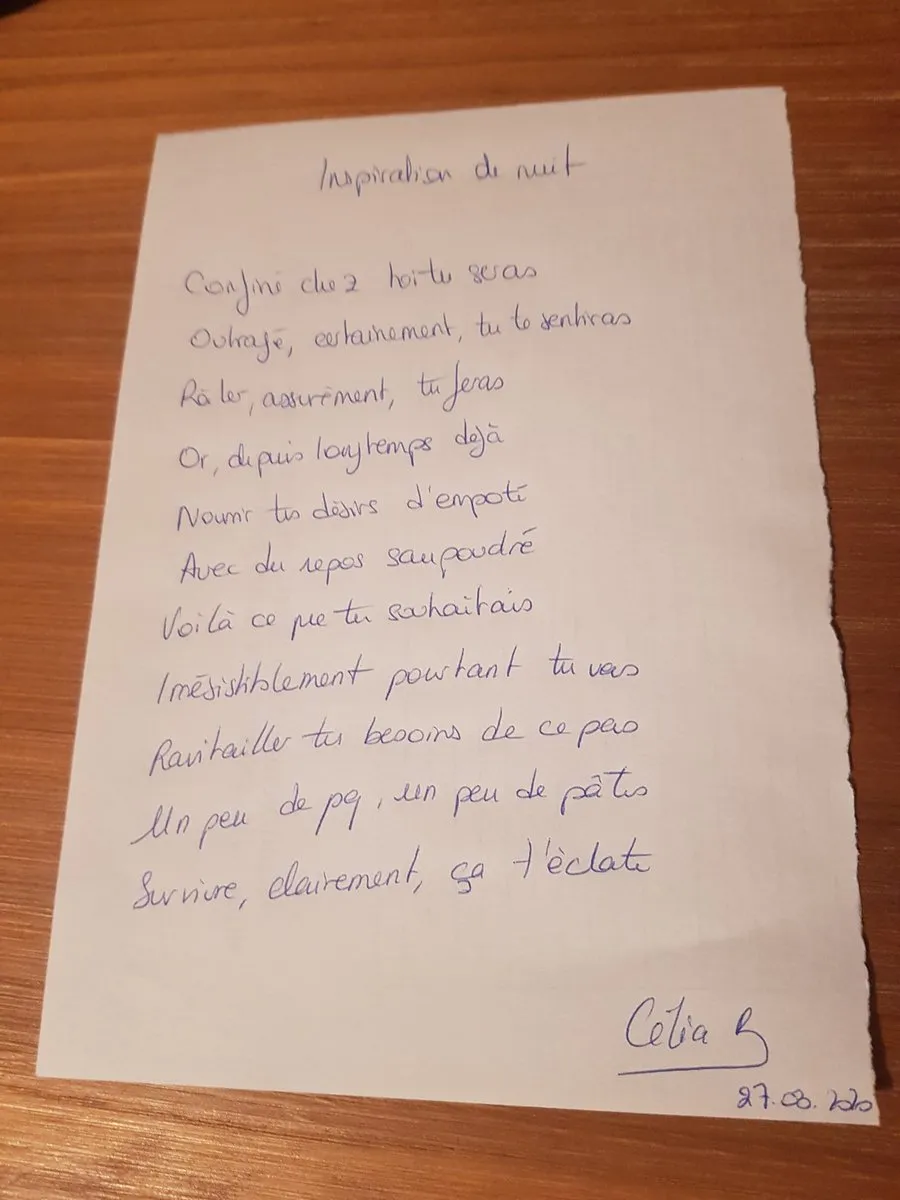 Inspiration de nuit
Confiné chez toi tu seras
Outragé, certainement, tu te sentiras
Râler, assurément, tu feras
Or, depuis longtemps déjà
Nourrir tes désirs d'empoté
Avec du repos saupoudré
Voilà ce que tu souhaitais
Irrésistiblement pourtant tu vas
Ravitailler tes besoins de ce pas
Un peu de pq, un peu de pâtes
Survivre, clairement, ça t'éclate
Célia B
27.03.2020